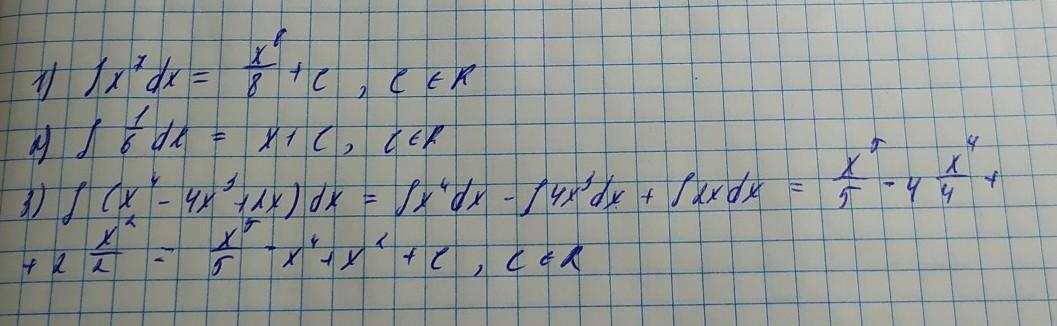 1) ∫x⁷dx = x⁸/8 + C , C ∈ R
2) ∫ 1/6 dx = x + C , C ∈ R
3) ∫ (x⁴ - 4x³ + 2x) dx = ∫x⁴dx - ∫4x³dx + ∫2xdx = x⁵/5 - 4 x⁴/4 +
+ 2 x²/2 = x⁵/5 - x⁴ + x² + C , C ∈ R